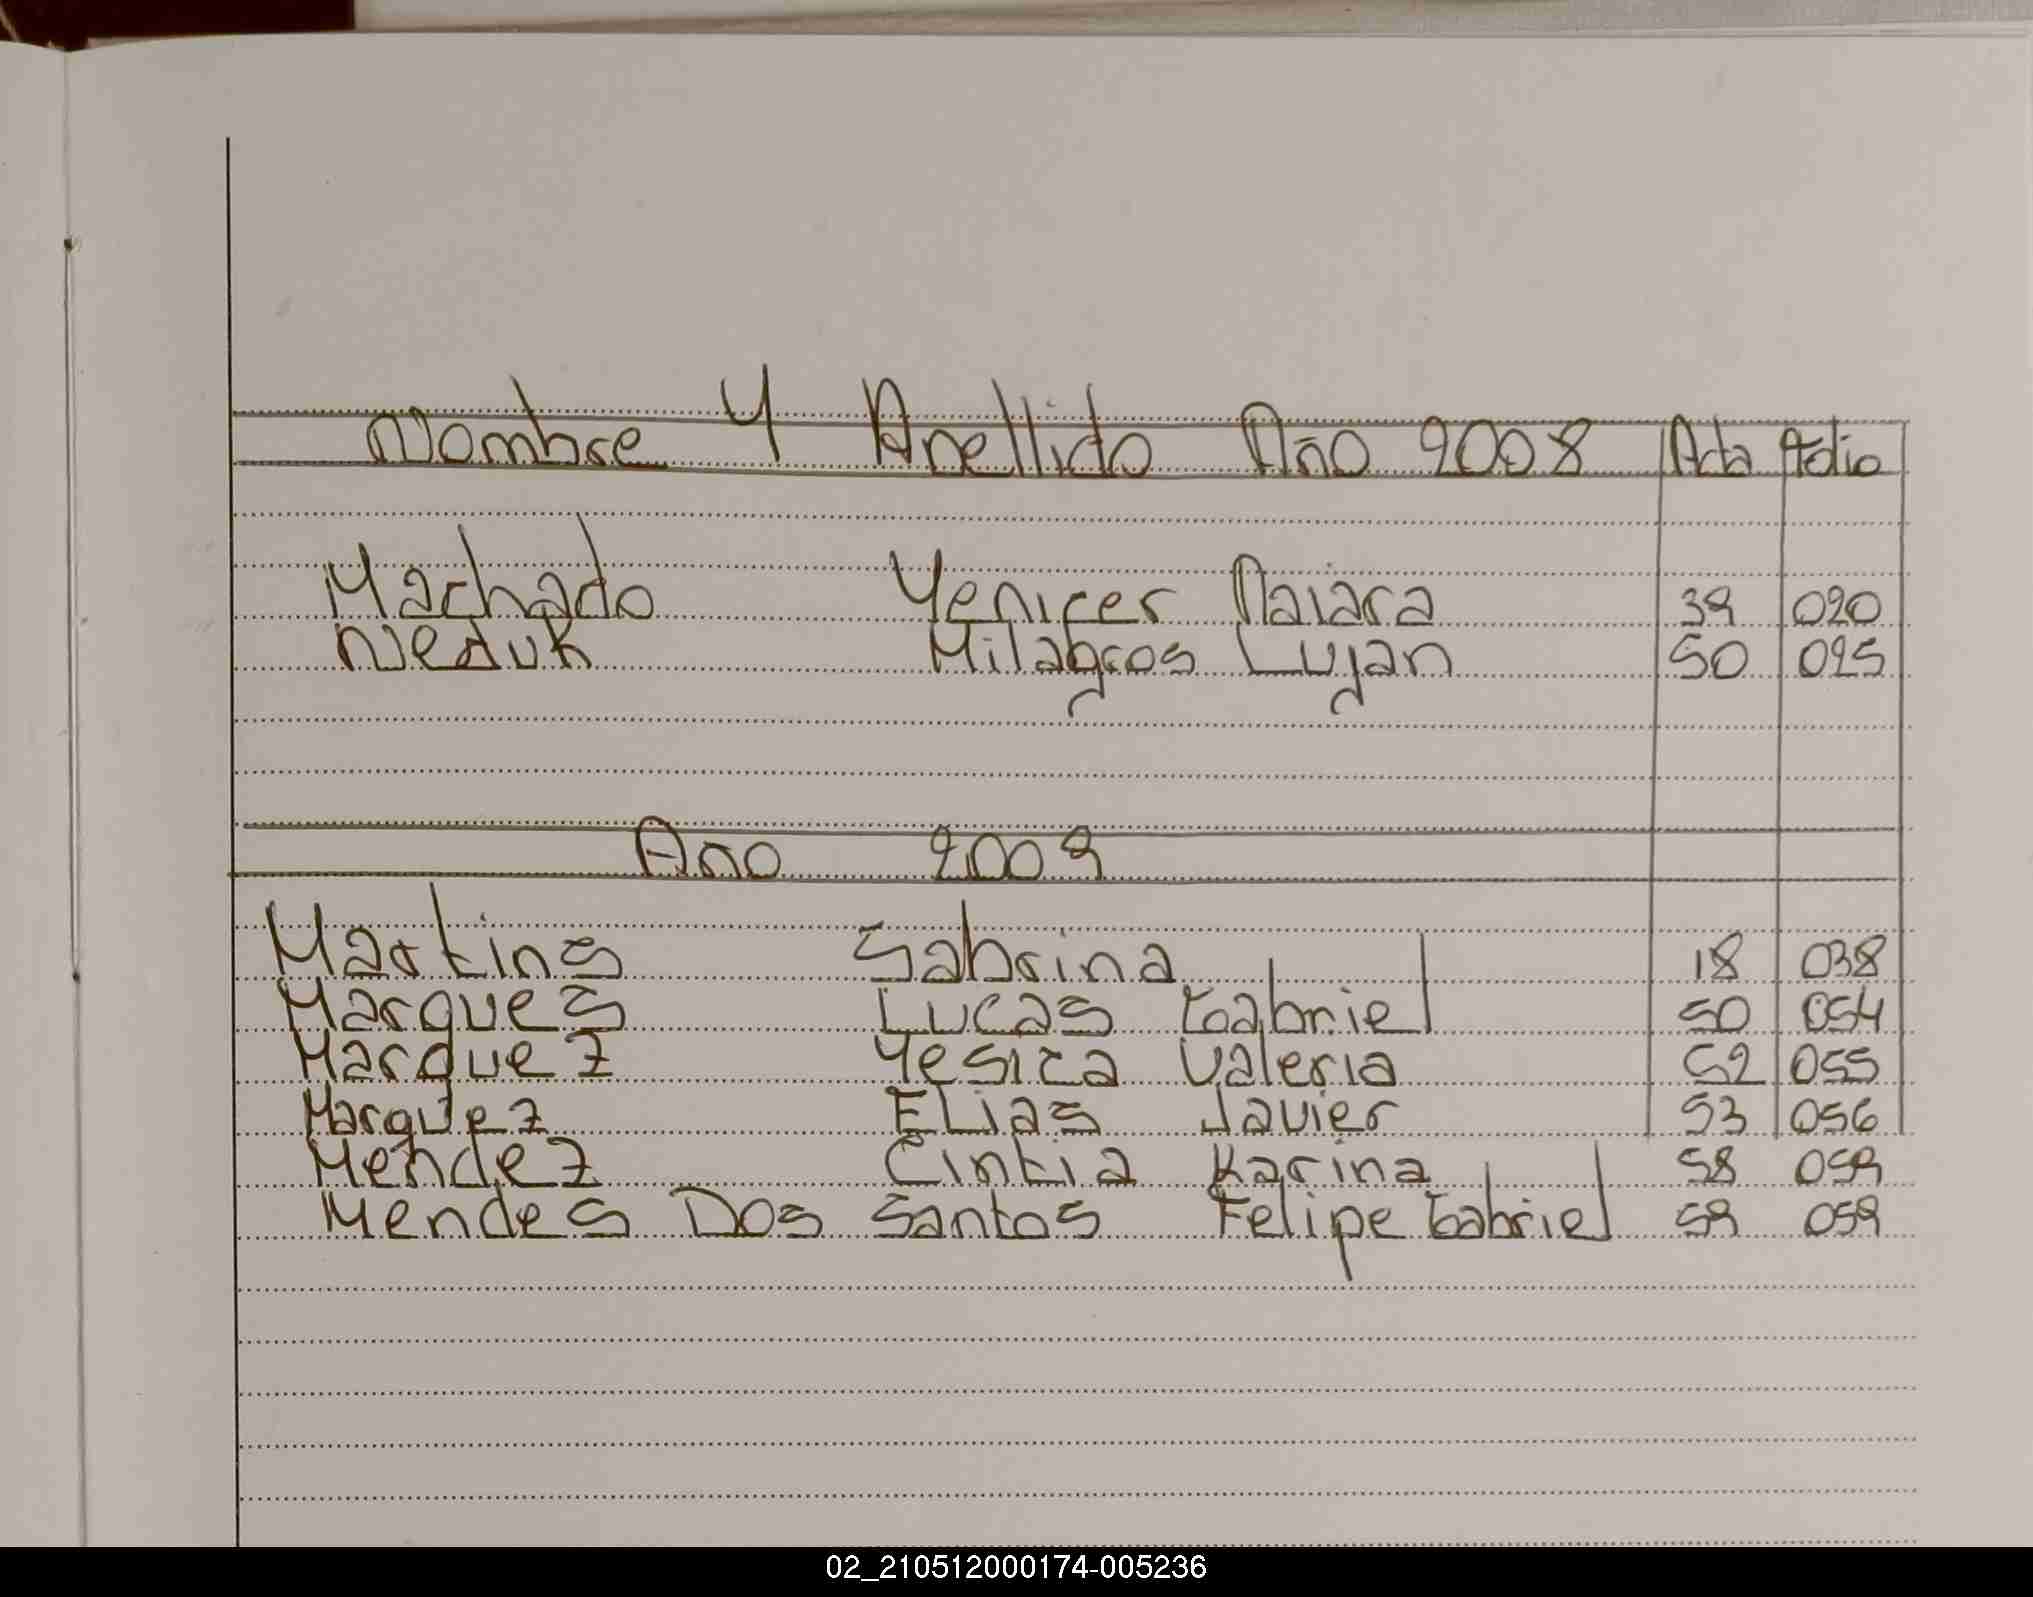 Nombre Y Apellido Año 2008 Acta Folio
Machado Yenifer Naiara 39 020
Neduk Milagros Lujan 50 025
Año 2009
Martins Sabrina 18 038
Marques Lucas Gabriel 50 054
Marquez Yesica Valeria 52 055
Marquez Elias Javier 53 056
Mendez Cintia Karina 58 059
Mendes Dos Santos Felipe Gabriel 59 059
02_210512000174-005236